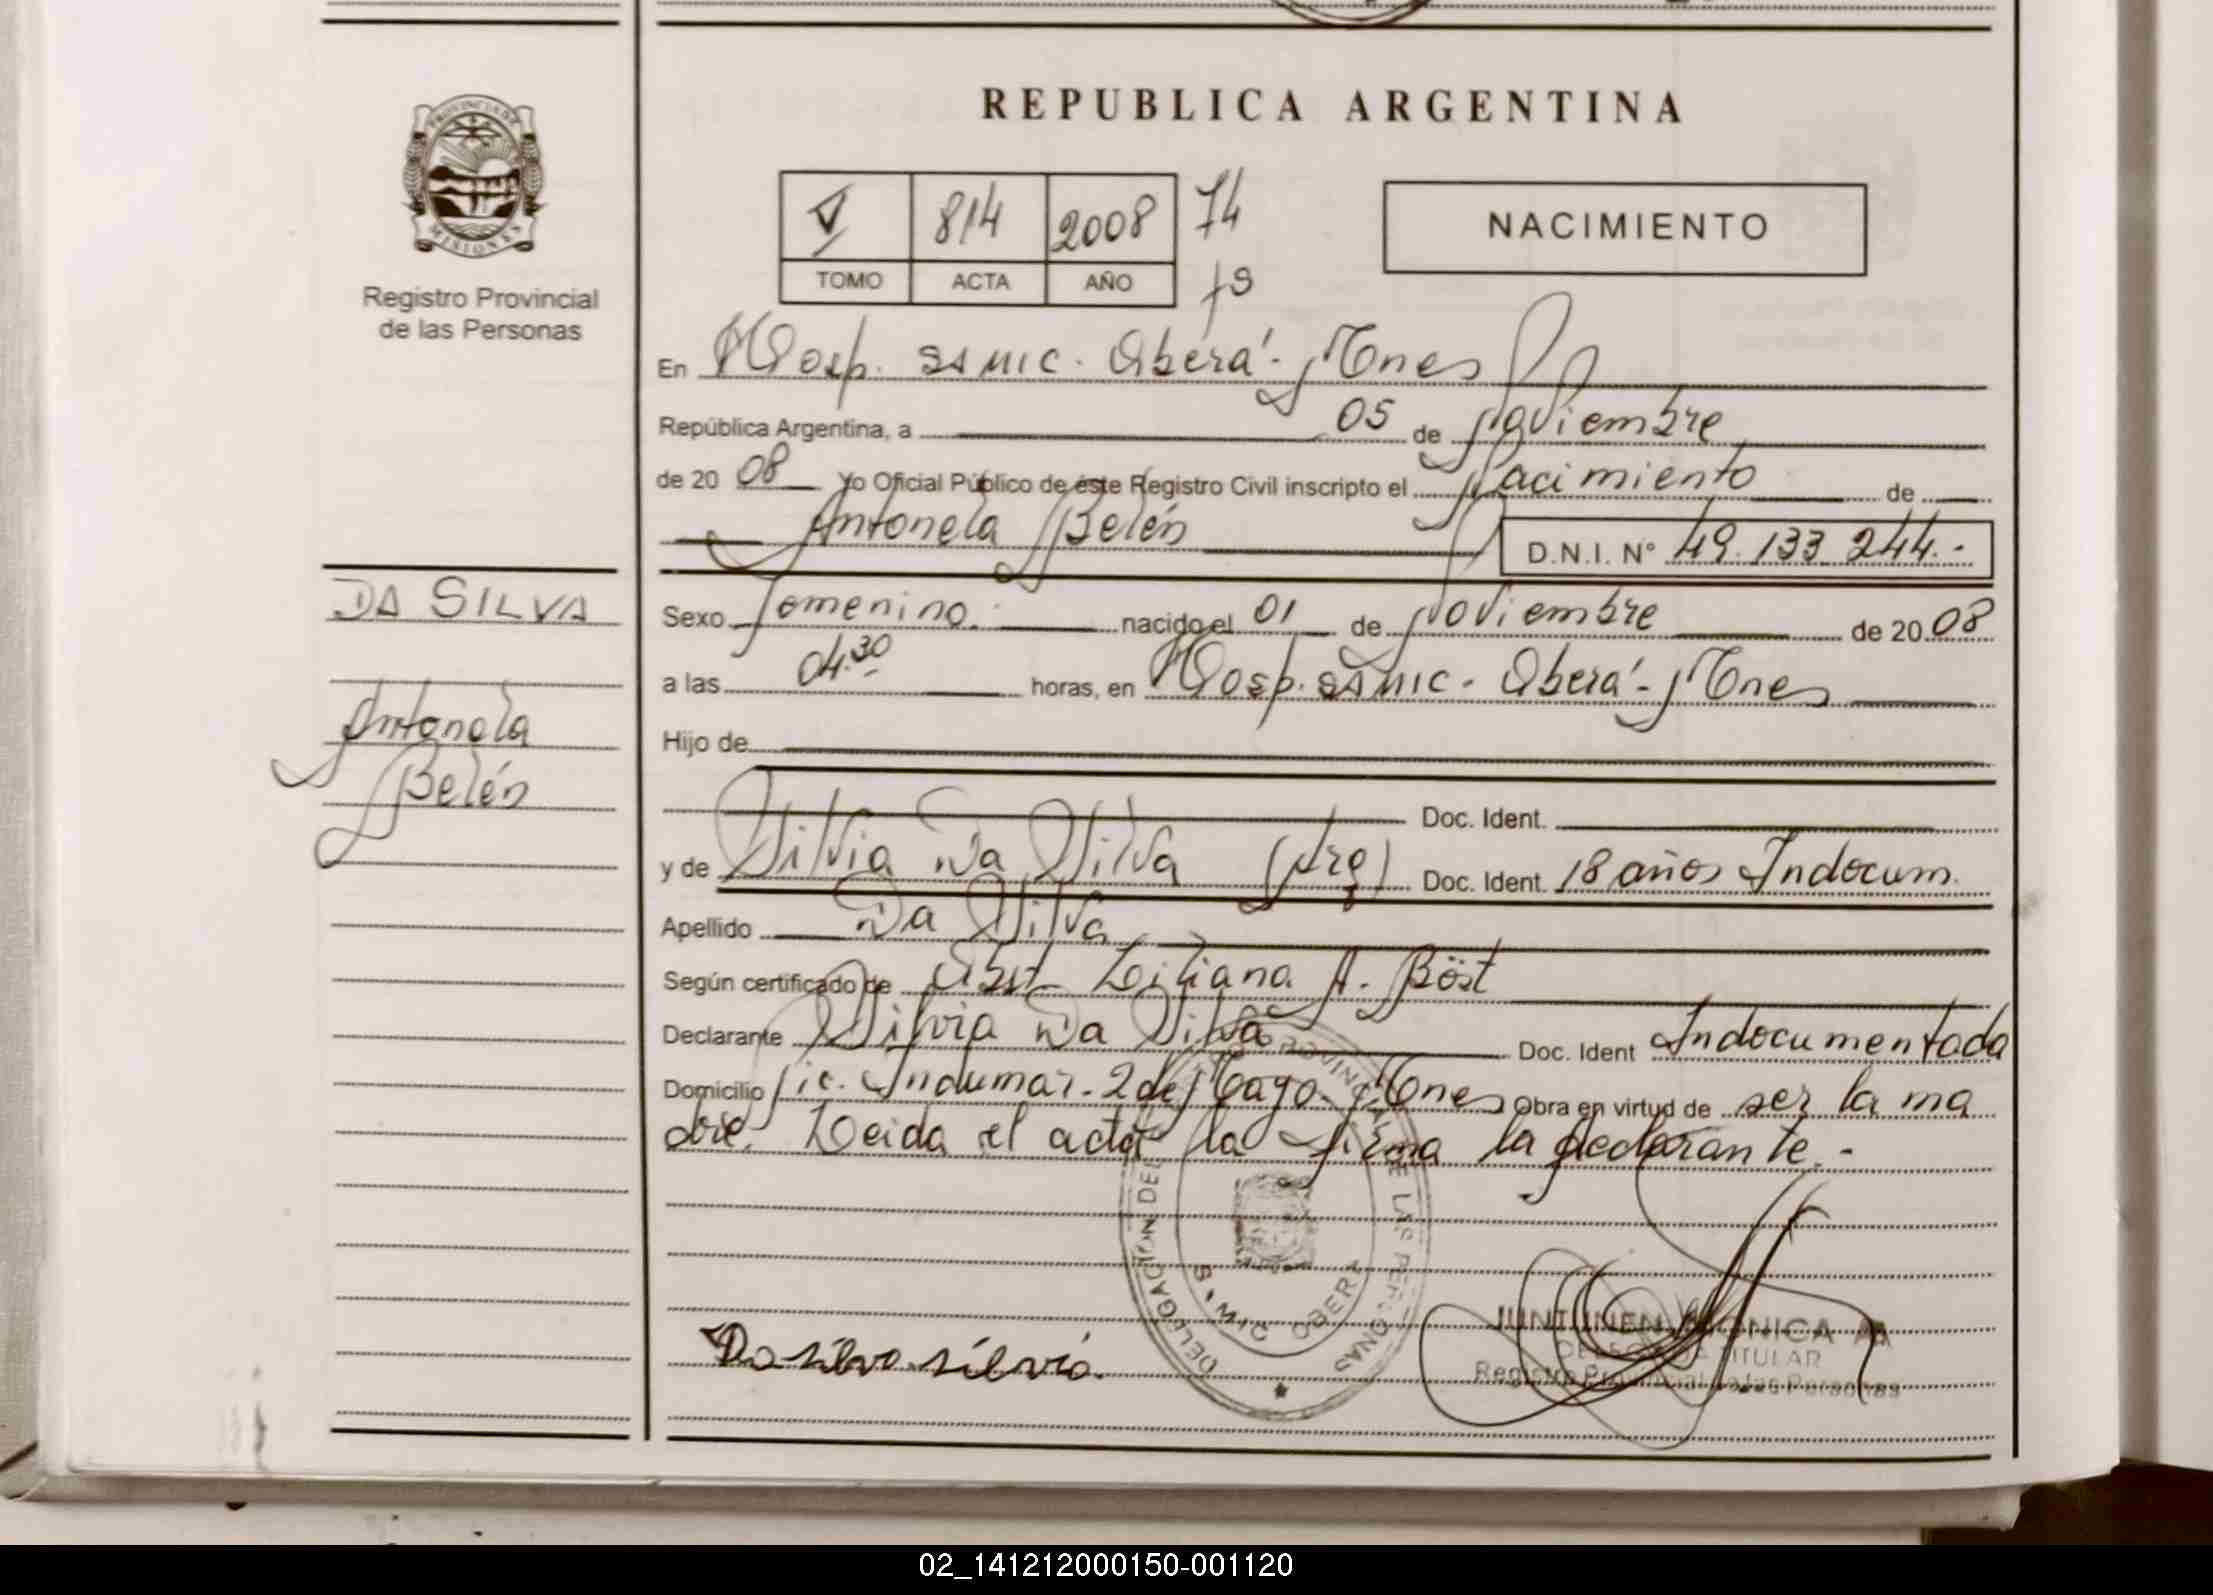 REPUBLICA ARGENTINA
PROVINCIA DE
MISIONES
Registro Provincial
de las Personas
V 814 2008 74
TOMO ACTA AÑO fs
NACIMIENTO
En Hosp. SAMIC. Oberá - Mnes
República Argentina, a 05 de Noviembre
de 20 08 Yo Oficial Público de éste Registro Civil inscripto el Nacimiento de
Antonela Belén D.N.I. Nº 49.133.244.-
DA SILVA
Antonela
Belén
Sexo femenino. nacido el 01 de Noviembre de 20 08
a las 04.30 horas, en Hosp. SAMIC - Oberá - Mnes
Hijo de
Doc. Ident.
y de Silvia Da Silva (Arg) Doc. Ident. 18 años Indocum.
Apellido Da Silva
Según certificado de Obst. Liliana A. Böst
Declarante Silvia Da Silva Doc. Ident Indocumentada
Domicilio Pic. Indumar - 2 de Mayo - Mnes Obra en virtud de ser la ma
dre. Leida el acta la firma la declarante.-
DELEGACION DEL PROVINCIAL DE LAS PERSONAS
OBERA
Da silva silvia.
JUNTUNEN MONICA
DELEGADA TITULAR
Registro Provincial de las Personas
02_141212000150-001120